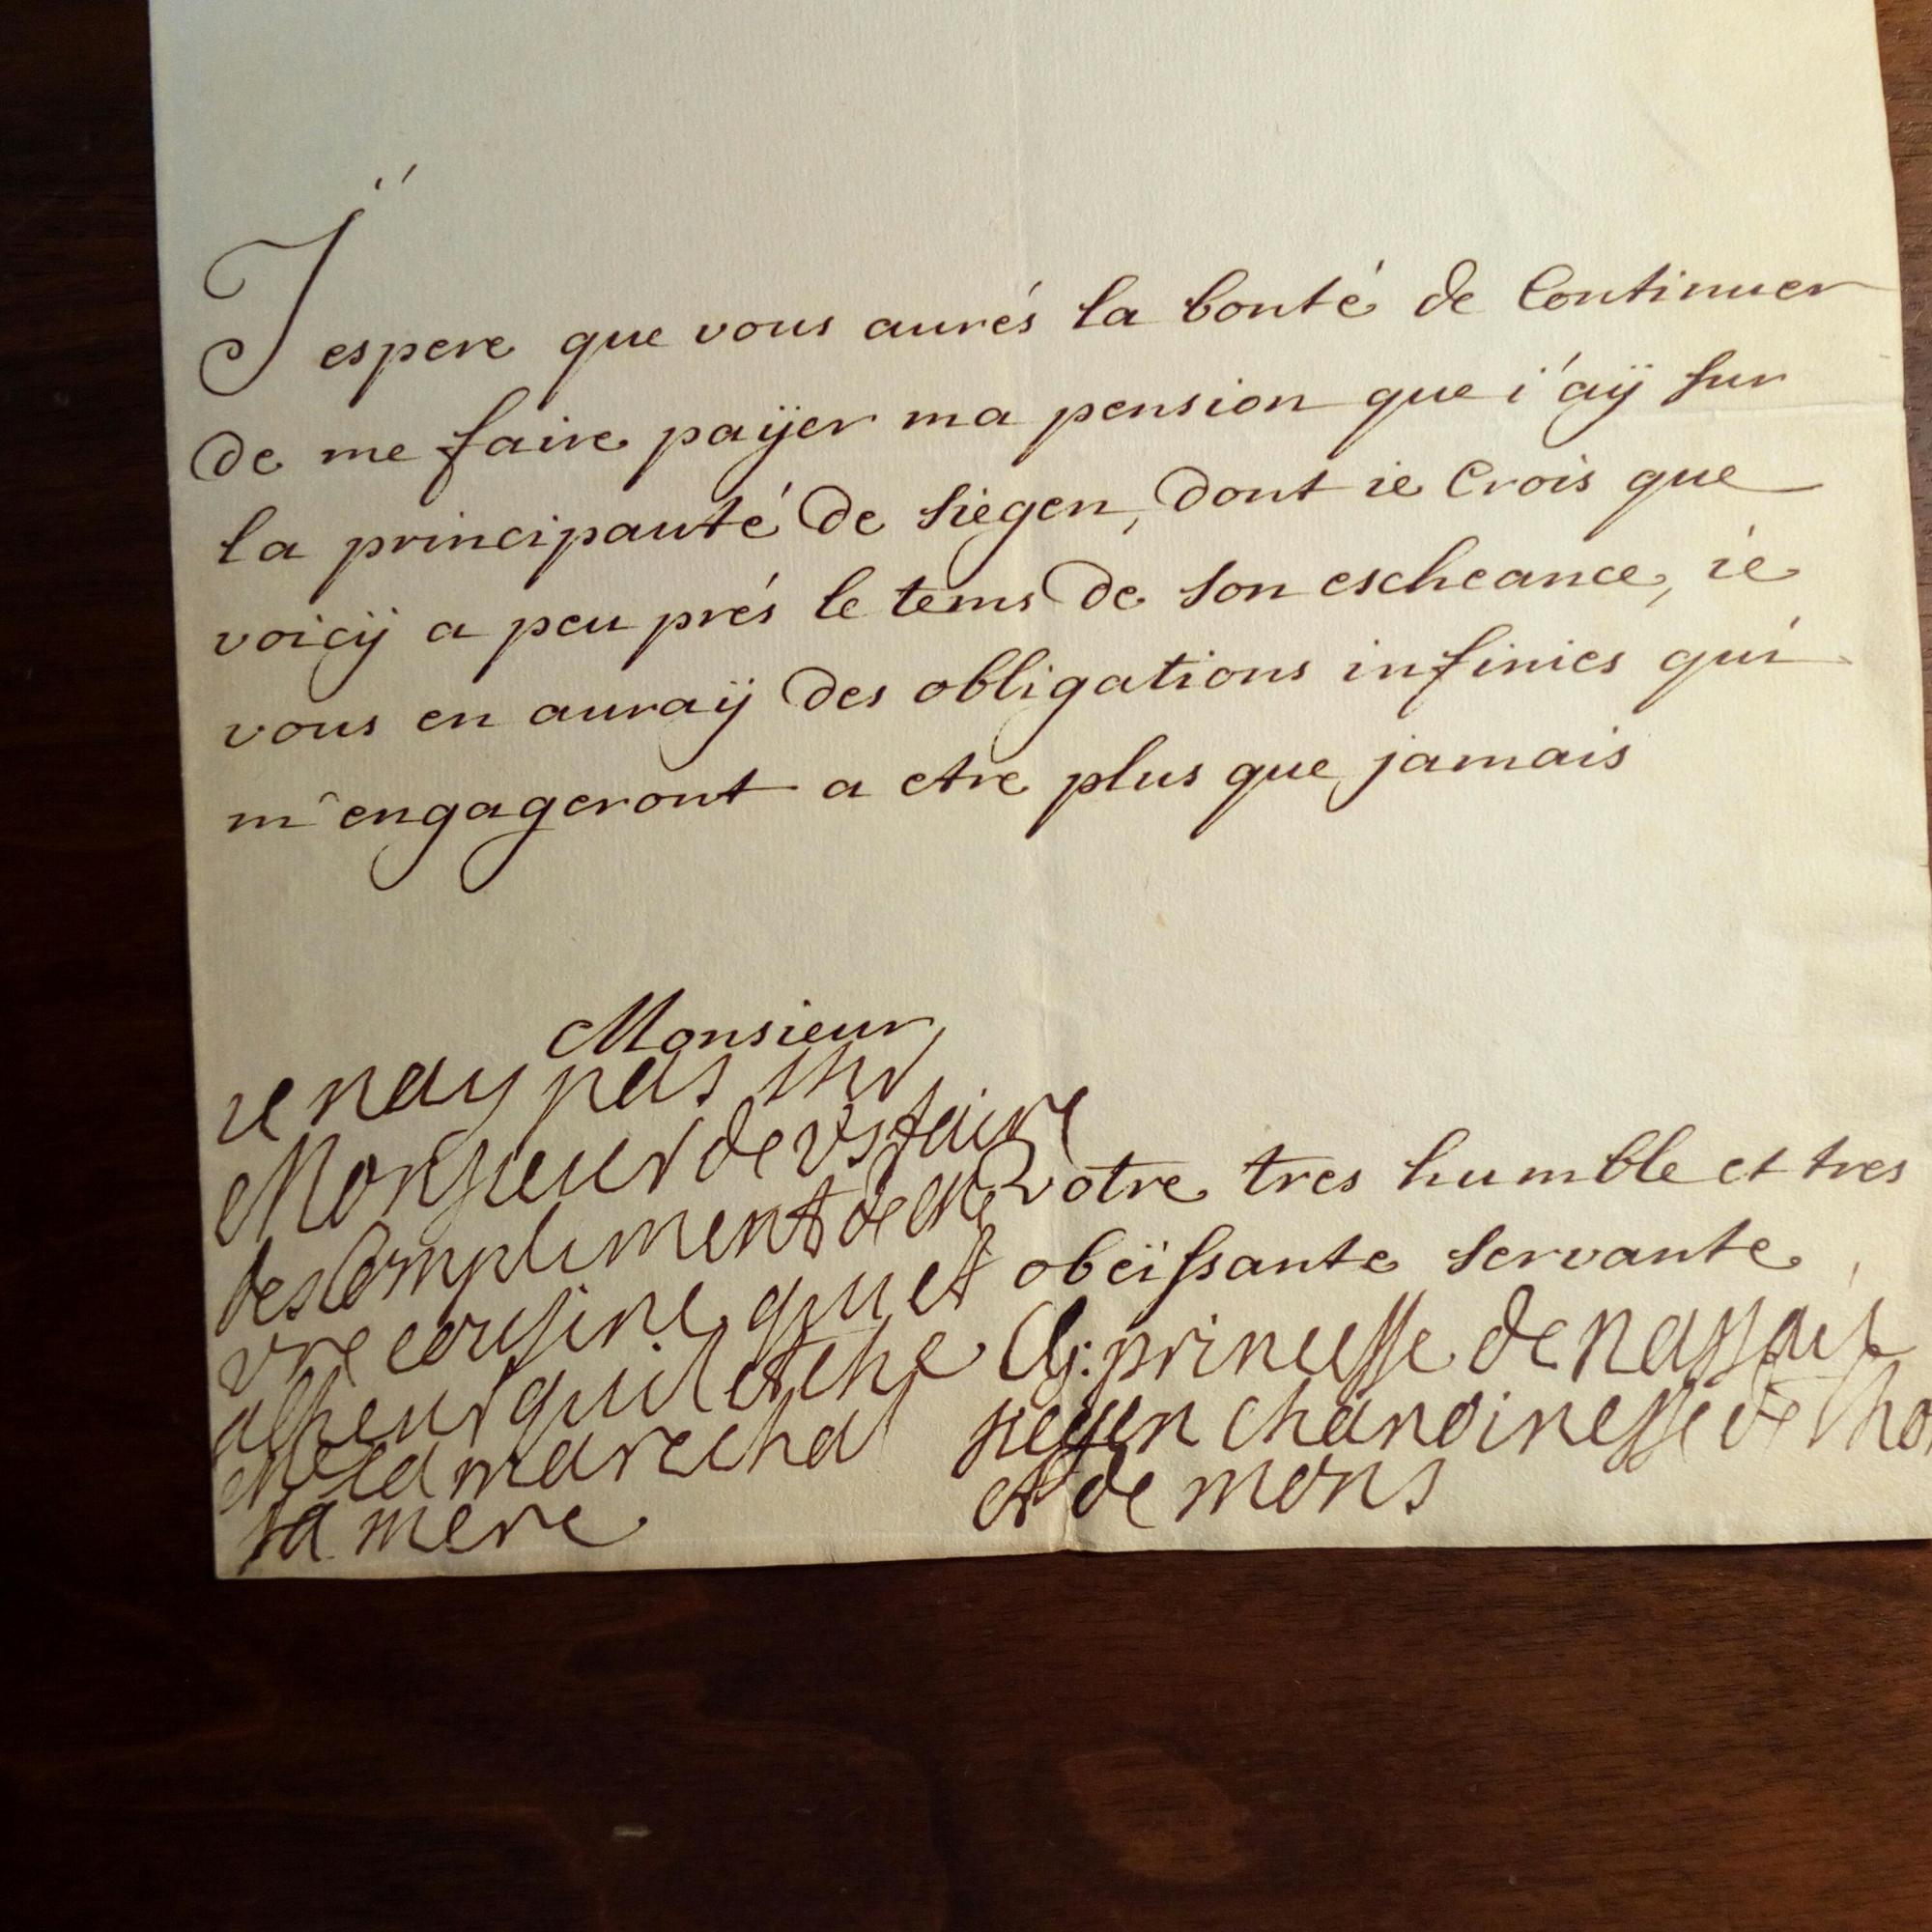 J'espere que vous aurés la bonté de Continuer
de me faire paÿer ma pension que i'aÿ sur
la principauté de siegen, dont ie Crois que
voicÿ a peu prés le tems de son escheance, ie
vous en auraÿ des obligations infinies qui
m'engageront a etre plus que jamais
Monsieur,
ie nay pas
Monsieur de vs faire
des Compliment de
vre cousine qui et
quil et che
marechal
sa mere
Votre tres humble et tres
obeïssante servante
princesse de nassau
siegen chanoinesse de tho
et de mons